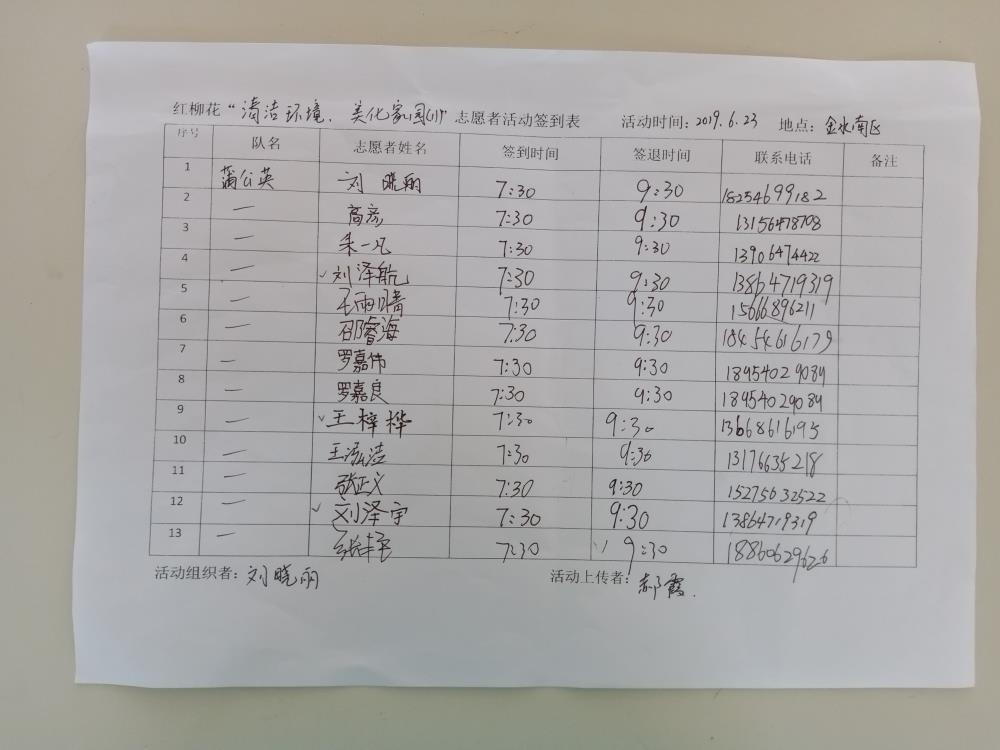 红柳花“清洁环境.美化家园(1)”志愿者活动签到表 活动时间:2019.6.23 地点:金水南区
序号 队名 志愿者姓名 签到时间 签退时间 联系电话 备注
1 蒲公英 刘晓丽 7:30 9:30 18254699182
2 — 高彦 7:30 9:30 13156478708
3 — 朱一凡 7:30 9:30 13906474422
4 — ✓刘泽航 7:30 9:30 13864719319
5 — 石雨晴 7:30 9:30 15666896211
6 — 邵睿海 7:30 9:30 18454616179
7 — 罗嘉伟 7:30 9:30 18954029089
8 — 罗嘉良 7:30 9:30 18954029089
9 — ✓王梓桦 7:30 9:30 13668616195
10 — 王泓洁 7:30 9:30 13176635218
11 — 张正义 7:30 9:30 15275632522
12 — ✓刘泽宇 7:30 9:30 13864719319
13 — 7:30 9:30 18860629626
活动组织者:刘晓丽 活动上传者:郝霞.